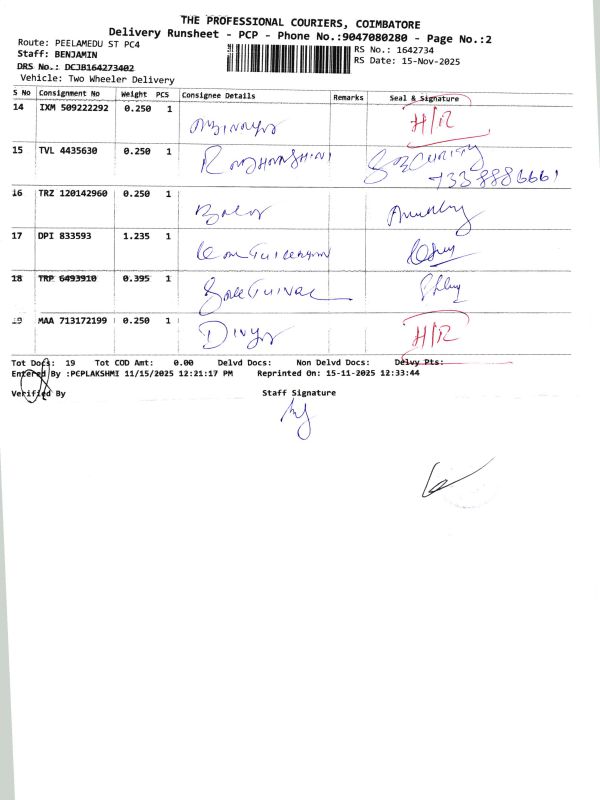 THE PROFESSIONAL COURIERS, COIMBATORE
Delivery Runsheet - PCP - Phone No.:9047080280 - Page No.:2
Route: PEELAMEDU ST PC4
Staff: BENJAMIN
DRS No.: DCJB164273402
Vehicle: Two Wheeler Delivery
RS No.: 1642734
RS Date: 15-Nov-2025
S No Consignment No Weight PCS Consignee Details Remarks Seal & Signature
14 IXM 509222292 0.250 1 H/R
15 TVL 4435630 0.250 1 SECURITY
7338886661
16 TRZ 120142960 0.250 1
17 DPI 833593 1.235 1
18 TRP 6493910 0.395 1
19 MAA 713172199 0.250 1 Divya H/R
Tot Docs: 19 Tot COD Amt: 0.00 Delvd Docs: Non Delvd Docs: Delvy Pts:
Entered By :PCPLAKSHMI 11/15/2025 12:21:17 PM Reprinted On: 15-11-2025 12:33:44
Verified By Staff Signature